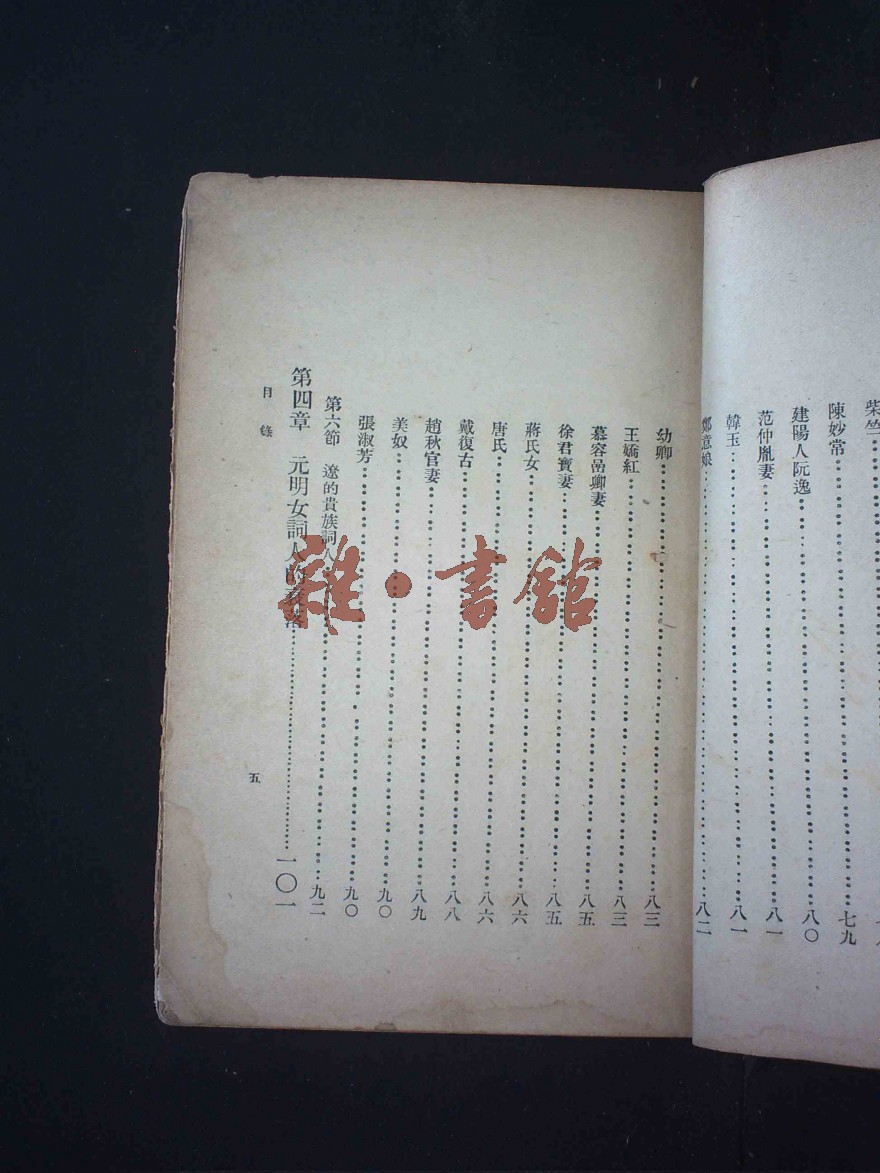 陳妙常……七九
建陽人阮逸……八〇
范仲胤妻……八一
韓玉……八一
鄭意娘……八二
幼卿……八三
王嬌紅……八三
慕容嵓卿妻……八五
徐君寶妻……八五
蔣氏女……八六
唐氏……八六
戴復古……八八
趙秋官妻……八九
美奴……九〇
張淑芳……九〇
第六節 遼的貴族詞人……九二
第四章 元明女詞人的衰落……一〇一
目錄
五
雜·書館